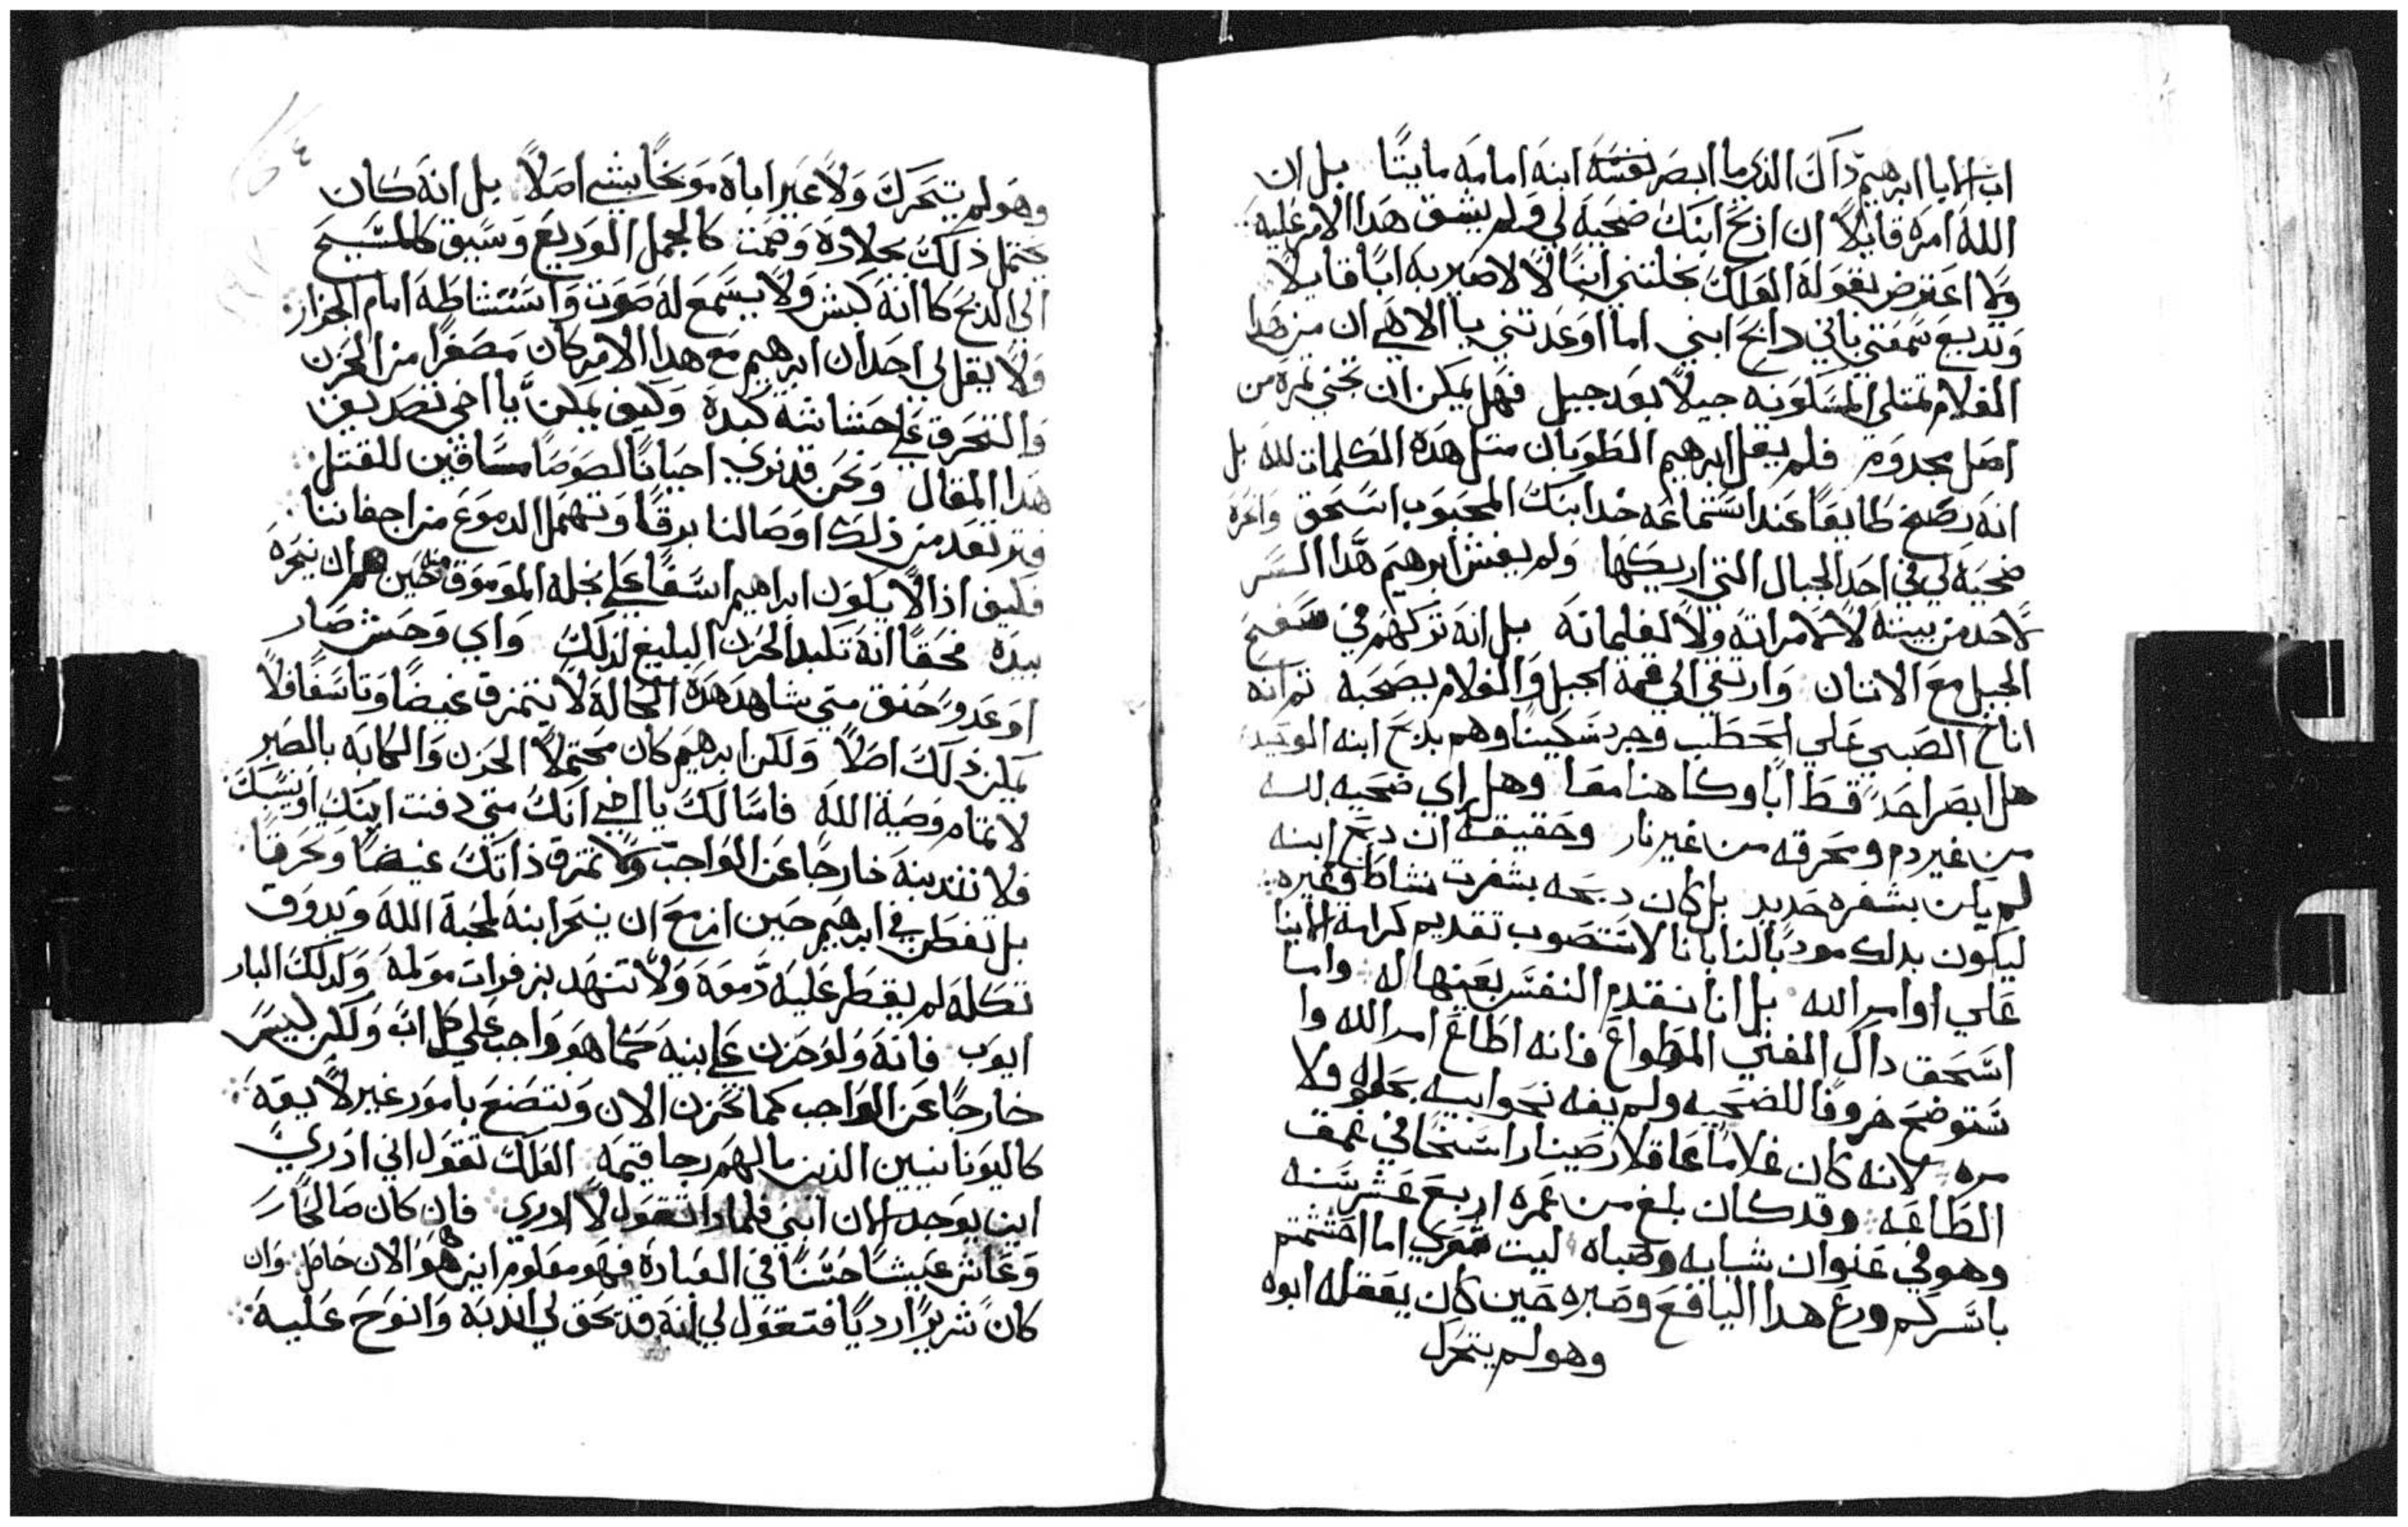 اب الابا ابرهيم ذاك الذي ما ابصر نفسه ابنه امامه مايتًا بل ان
الله امره قايلًا ان اذبح ابنك ضحيه لي ولم يشق هدا الامر عليه
ولا اعترض بقوله العلك نخلتني ابنًا لا لاصير به ابًا قايلًا
وتديع سمعتي باني دابح ابني اما اوعدتني يا الاهي ان من هدا
الغلام تمتلي المسكونه جيلًا بعد جيل فهل يمكن ان تجني تمره من
اصل مجدوم فلم يقل ابرهيم الطوبان متل هده الكلمات لله بل
انه رضخ طايعًا عند استماعه خد ابنك المحبوب اسحق وانحره
ضحيه لي في احد الجبال التي اريكها ولم يفش ابرهيم هدا السر
لاحد من بيته لا لامراته ولا لغلمانه بل انه تركهم في سفح
الجبل مع الاتنان وارتقي الي قمة الجبل والغلام يصحبه تم انه
اناخ الصبي علي الحطب وجرد سكينًا وهم بدبح ابنه الوحيد
هل ابصر احد قط ابًا وكاهنا معًا وهل راي ضحيه لله
من غير دم ومحرقه من غير نار وحقيقة ان دبح ابنه
لم يكن بشفره حديد بل كان دبحه بشفرت نشاط وغيره
ليكون بدلك مودبًا لنا باننا لا نستصوب تقديم كرامة الابنا
علي اوامر الله بل اننا نقدم النفس بعينها له واما
اسحق داك الفتي المطواع فانه اطاع امر الله وا
ستوضح خروفًا للضحيه ولم يفه نحو ابيه بحلوه ولا
مره لانه كان غلامًا عاقلا رصينا راسخًا في عمق
الطاعه وقد كان بلغ من عمره اربع عشر سنه
وهو في عنوان شبابه وصباه ليت شعري اما احتشمتم
باسركم ورع هدا اليافع وصبره حين كان يعقله ابوه
وهو لم يتحرك
وهو لم يتحرك ولا عير اباه موبخًا بشي اصلًا بل انه كان
يحتمل ذلك بجلاده وصمت كالجمل الوديع وسيق كالمسيح
الي الدبح كانه كبش ولا يسمع له صوت واستشاطه امام الجزار
ولا يقل لي احد ان ابرهيم مع هدا الامر كان مصغرًا من الحزن
والتحرق علي حشاشه كبده وكيف يمكن يا اخي تصديق
هدا المقال ونحن قد نري احيانًا لصوصًا مساقين للقتل
فترتعد من ذلك اوصالنا برقًا وتهمل الدموع من اجفاننا
فكيف اذا لا يكون ابراهيم اسفًا علي نجله الموموق منه حين هم ان ينحره
بيده فحقًا انه تكبد الحزن البليغ لذلك واي وحش ضار
او عدو حنق متي شاهد هده الحاله لا يتمزق غيضًا وتاسفًا فلا
يمكن ذلك اصلًا ولكن ابرهيم كان محتملًا الحزن والكابه بالصبر
لاتمام وصية الله فاسالك يا اخي انك متي دفنت ابنك او بنتك
فلا تندبنه خارجًا عن الواجب ولا تمزق ذاتك غيضًا وتحرقًا
بل تفطن في ابرهيم حين ازمع ان ينحر ابنه لمحبة الله ويدوق
تكله لم يقطر عليه دمعه ولا تنهد بزفرات مولمه وكدلك البار
ايوب فانه ولو حزن علي بنيه كما هو واجب علي كل اب ولكن ليس
خارجًا عن الواجب كما تحزن الان وتتصنع بامور غير لايقه
كاليونانيين الذين ما لهم رجا قيمه العلك تقول اني ادري
اين يوجد الان ابني فلمادا تقول لا ادري فان كان صالحًا
وعاش عيشًا حسنًا في العباده فهو معلوم اين هو الان حاصل وان
كان شريرًا رديًا فتقول لي انه قد يحق لي اندبه وانوح عليه